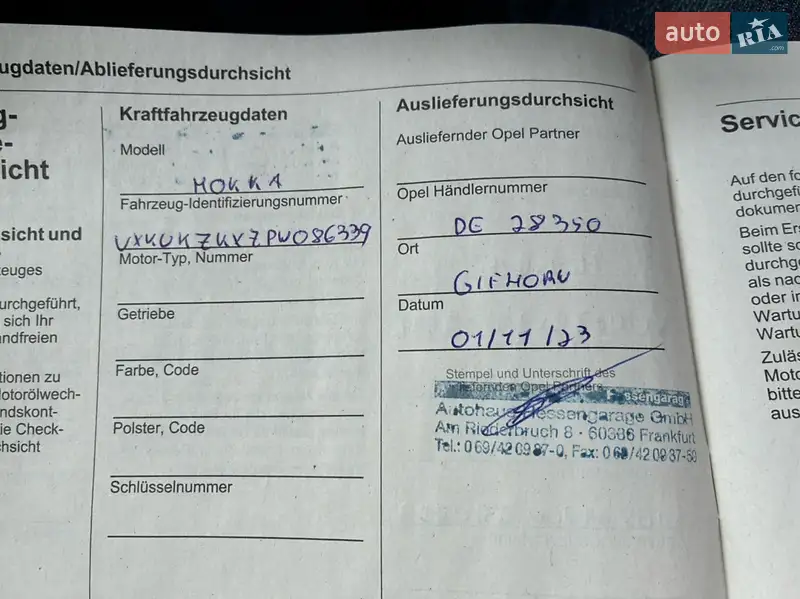 auto RIA .com
ugdaten/Ablieferungsdurchsicht
g-
e-
icht
sicht und
zeuges
urchgeführt,
sich Ihr
ndfreien
tionen zu
Motorölwech-
ndskont-
ie Check-
hsicht
Kraftfahrzeugdaten
Modell
MOKKA
Fahrzeug-Identifizierungsnummer
VXKUKZKXZPW086339
Motor-Typ, Nummer
Getriebe
Farbe, Code
Polster, Code
Schlüsselnummer
Auslieferungsdurchsicht
Ausliefernder Opel Partner
Opel Händlernummer
DE 28350
Ort
GIFHORN
Datum
01/11/23
Stempel und Unterschrift des
ausliefernden Opel Partners
Autohaus Messengarage GmbH
Am Riederbruch 8 · 60386 Frankfurt
Tel.: 069/42 09 87-0, Fax: 069/42 09 87-50
Servic
Auf den fo
durchgefü
dokumen
Beim Ers
sollte so
durchge
als nac
oder in
Wartu
Wartu
Zuläs
Moto
bitte
aus